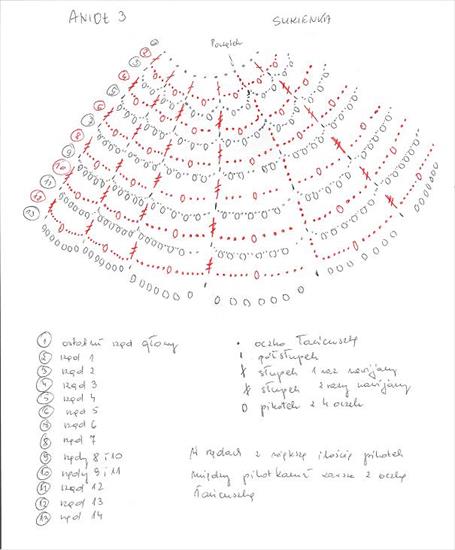 ANIOŁ 3 SUKIENKA
Początek
1 2 3 4 5 6 7 8 9 10 11 12 13
1 ostatni rząd głowy
2 rząd 1
3 rząd 2
4 rząd 3
5 rząd 4
6 rząd 5
7 rząd 6
8 rząd 7
9 rzędy 8 i 10
10 rzędy 9 i 11
11 rząd 12
12 rząd 13
13 rząd 14
• oczko łańcuszka
półsłupek
słupek 1 raz nawijany
słupek 2 razy nawijany
0 pikotek z 4 oczek
W rzędach z większą ilością pikotek
między pikotkami zawsze 2 oczka
łańcuszka